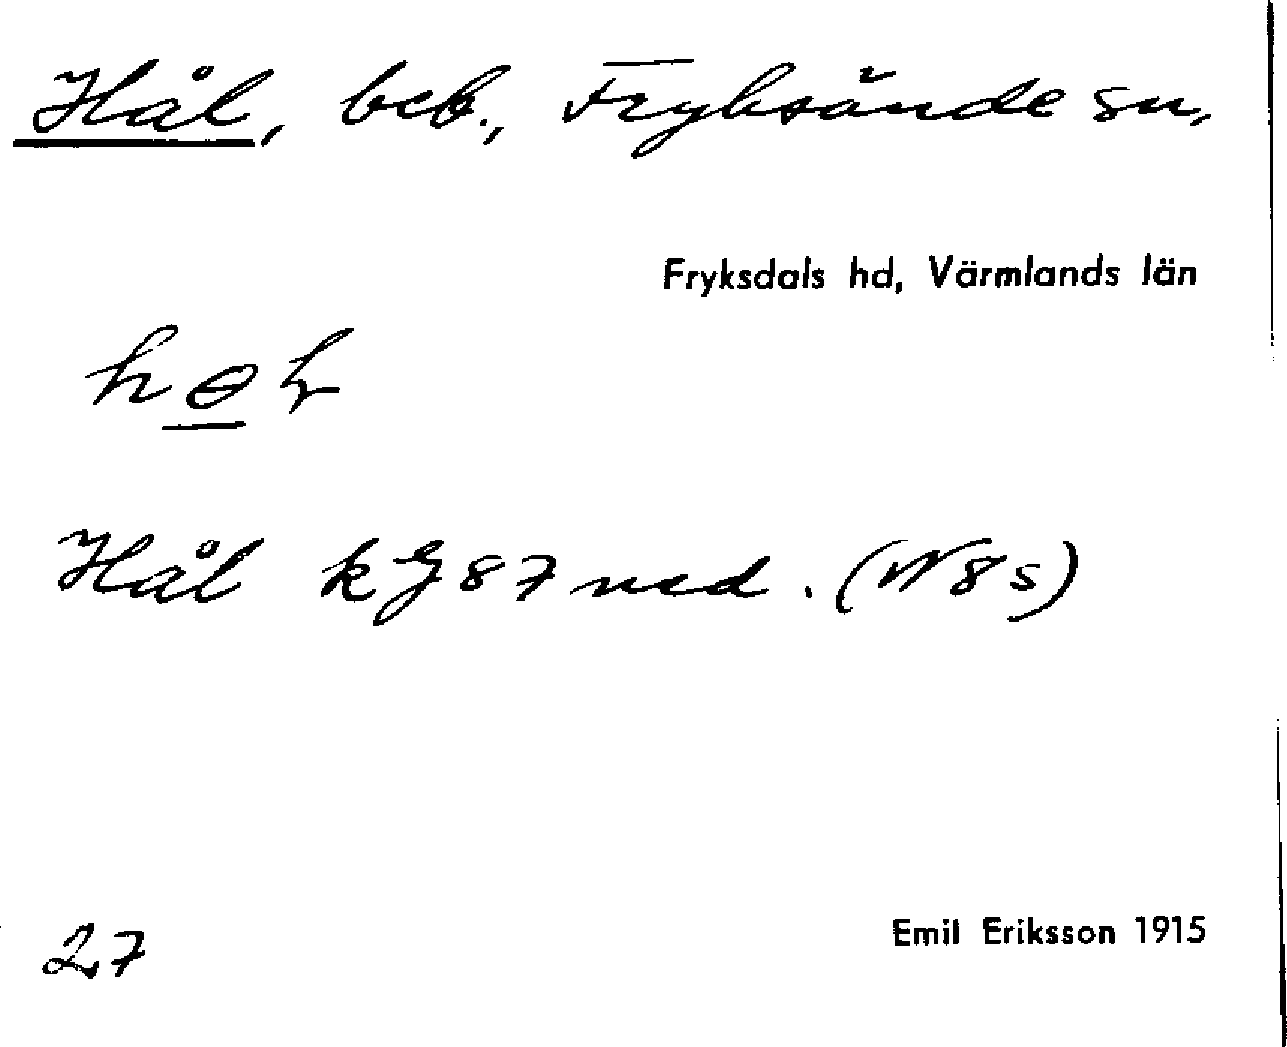 Hål, beb., Fryksände sn,
Fryksdals hd, Värmlands län
Hål kG87 ned. (N8s)
27
Emil Eriksson 1915